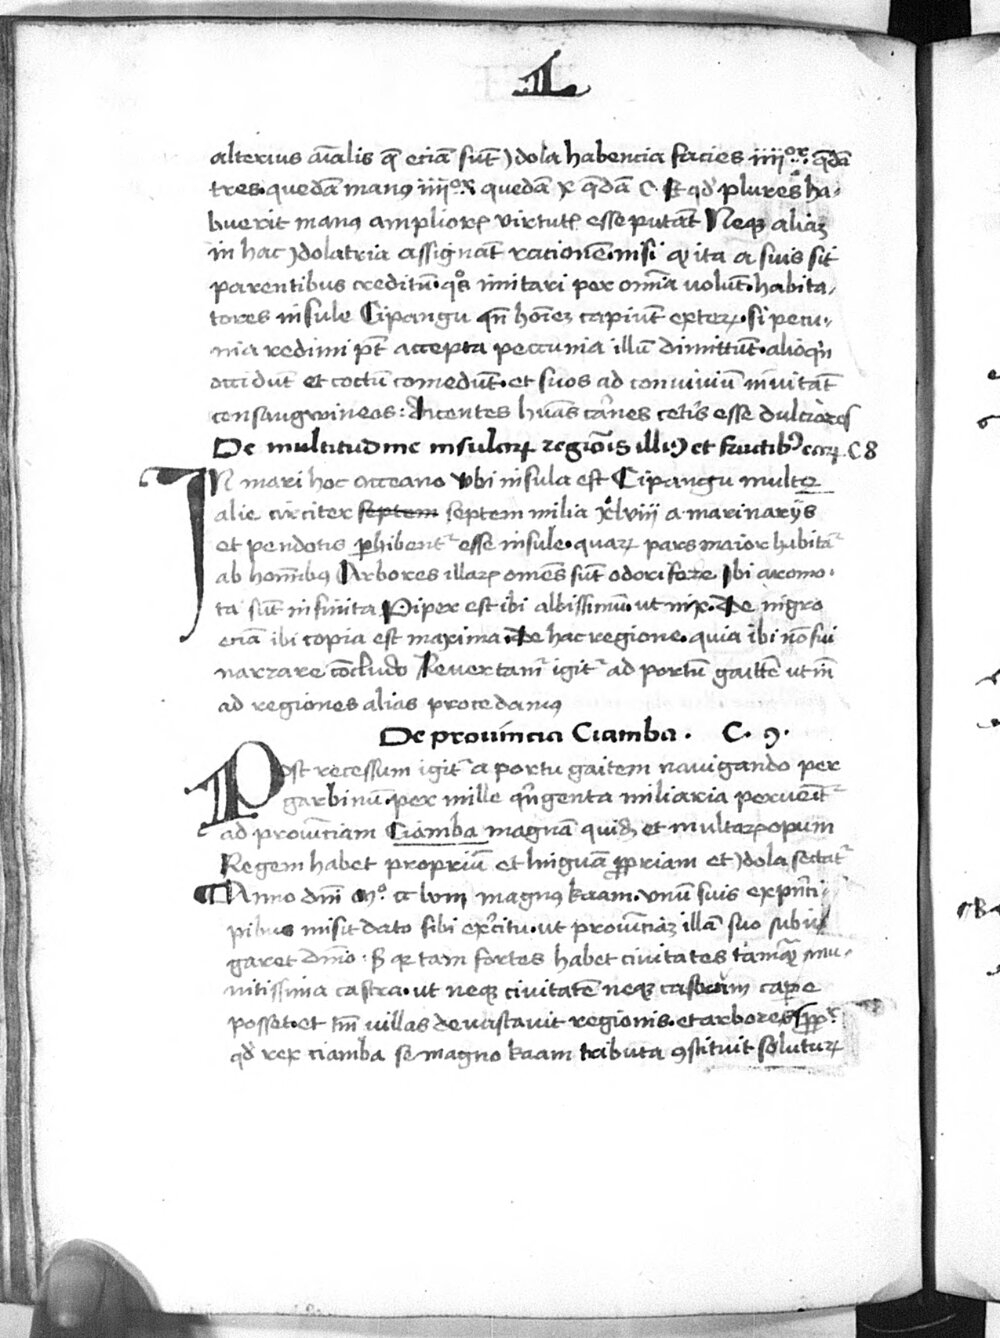 L
alterius aĩalis q̃ eciã sũt ydola habencia facies iiijor. q̃dã
tres. quedã manus iiijor quedã x q̃dã C. Sꝫ qđ plures ha-
buerit manus ampliorẽ virtutẽ esse putãt Neqꝫ aliaꝫ
in hac ydolatria assignãt rationẽ. nisi qꝫ ita a suis sit
parentibus creditũ. qos imitari per omĩa uolũt. habita-
tores insule Cipangu qñ hoĩeꝫ capiũt exterꝝ. si pecu-
nia redimi pt̃ accepta peccunia illũ dimittũt. alioqñ
occidũt et coctũ comedũt. et suos ad conuiuiũ inuitãt
consangwineos: dicentes hũas carnes ceteris esse dulciores
De multitudine insularꝝ regiõis illius et fructibꝯ earꝝ. C 8
IN mari hoc occeano vbi insula est Cipangu multe
alie circiter septem septem milia xlviij a marinarijs
et pendotis ꝑhibent esse insule. quarꝝ pars maior habitat
ab homĩbus Arbores illarꝝ omẽs sũt odorifere Ibi aromo-
ta sũt infinita Piper est ibi albissimũ. ut nix. De nigro
eciã ibi copia est maxima. De hac regione. quia ibi nõ fui
narrare cõcludo Reuertamur igit ad portũ gaittẽ ut ĩn
ad regiones alias procedamus
De prouincia Ciamba. C. 9.
Post recessum igit̃ a portu gaitem nauigando per
garbinũ. per mille qñgenta miliaria peruenit̃
ad prouĩciam Ciamba magnã quidẽ et multarꝝ opum
Regem habet propriũ et linguã ꝓpriam et ydola sectat̃
Anno dñi Mo. cc lviij magnus kaam. vnũ suis ex prĩci-
pibus misit dato sibi exercitu. ut prouĩciaꝫ illã suo subiu
garet dñio. sꝫ qꝫ tam fortes habet ciuitates tamqꝫ mu-
nitissima castra. ut neqꝫ ciuitatẽ neqꝫ castrum capere
posset. et tm̃ uillas deuastauit regionis. et arbores ꝓpter
qđ rex ciamba se magno kaam tributa ꝯstituit soluturꝝ